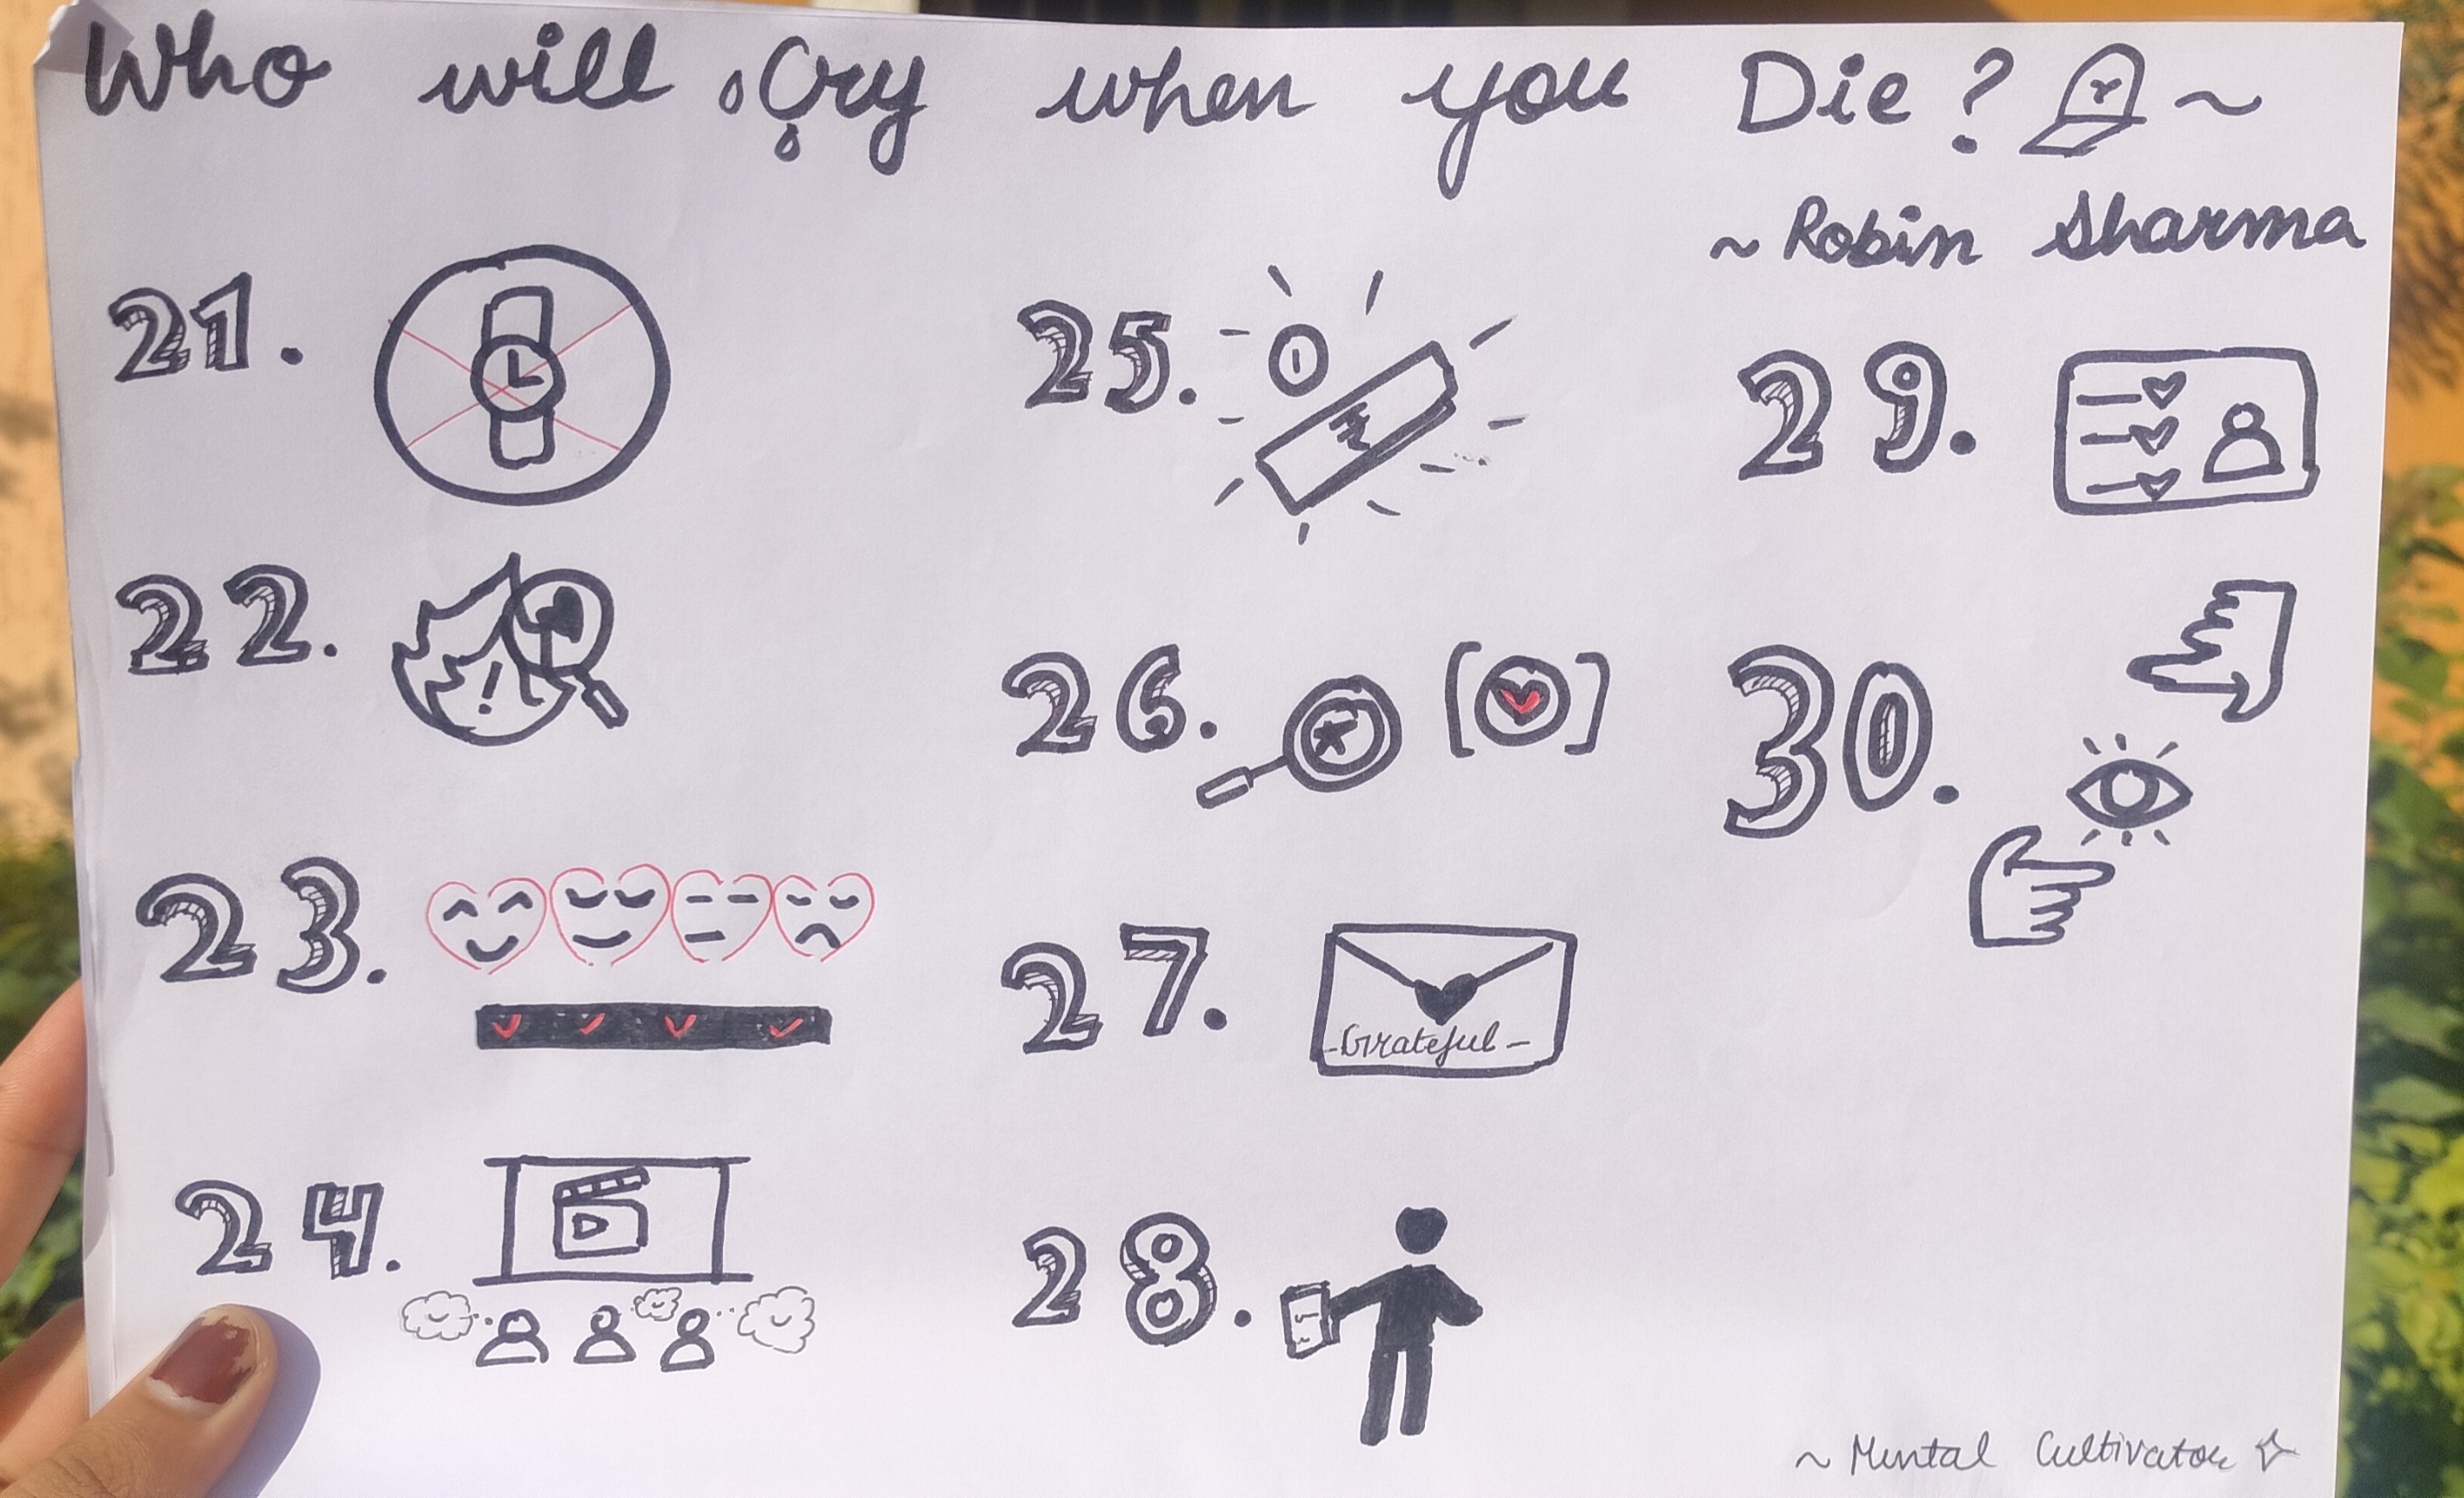 Who will Cry when you Die? r ~
~ Robin Sharma
21.
22. !
23.
24.
25. 1 ₹
26.
27. -Grateful-
28.
29.
30.
~ Mental Cultivator